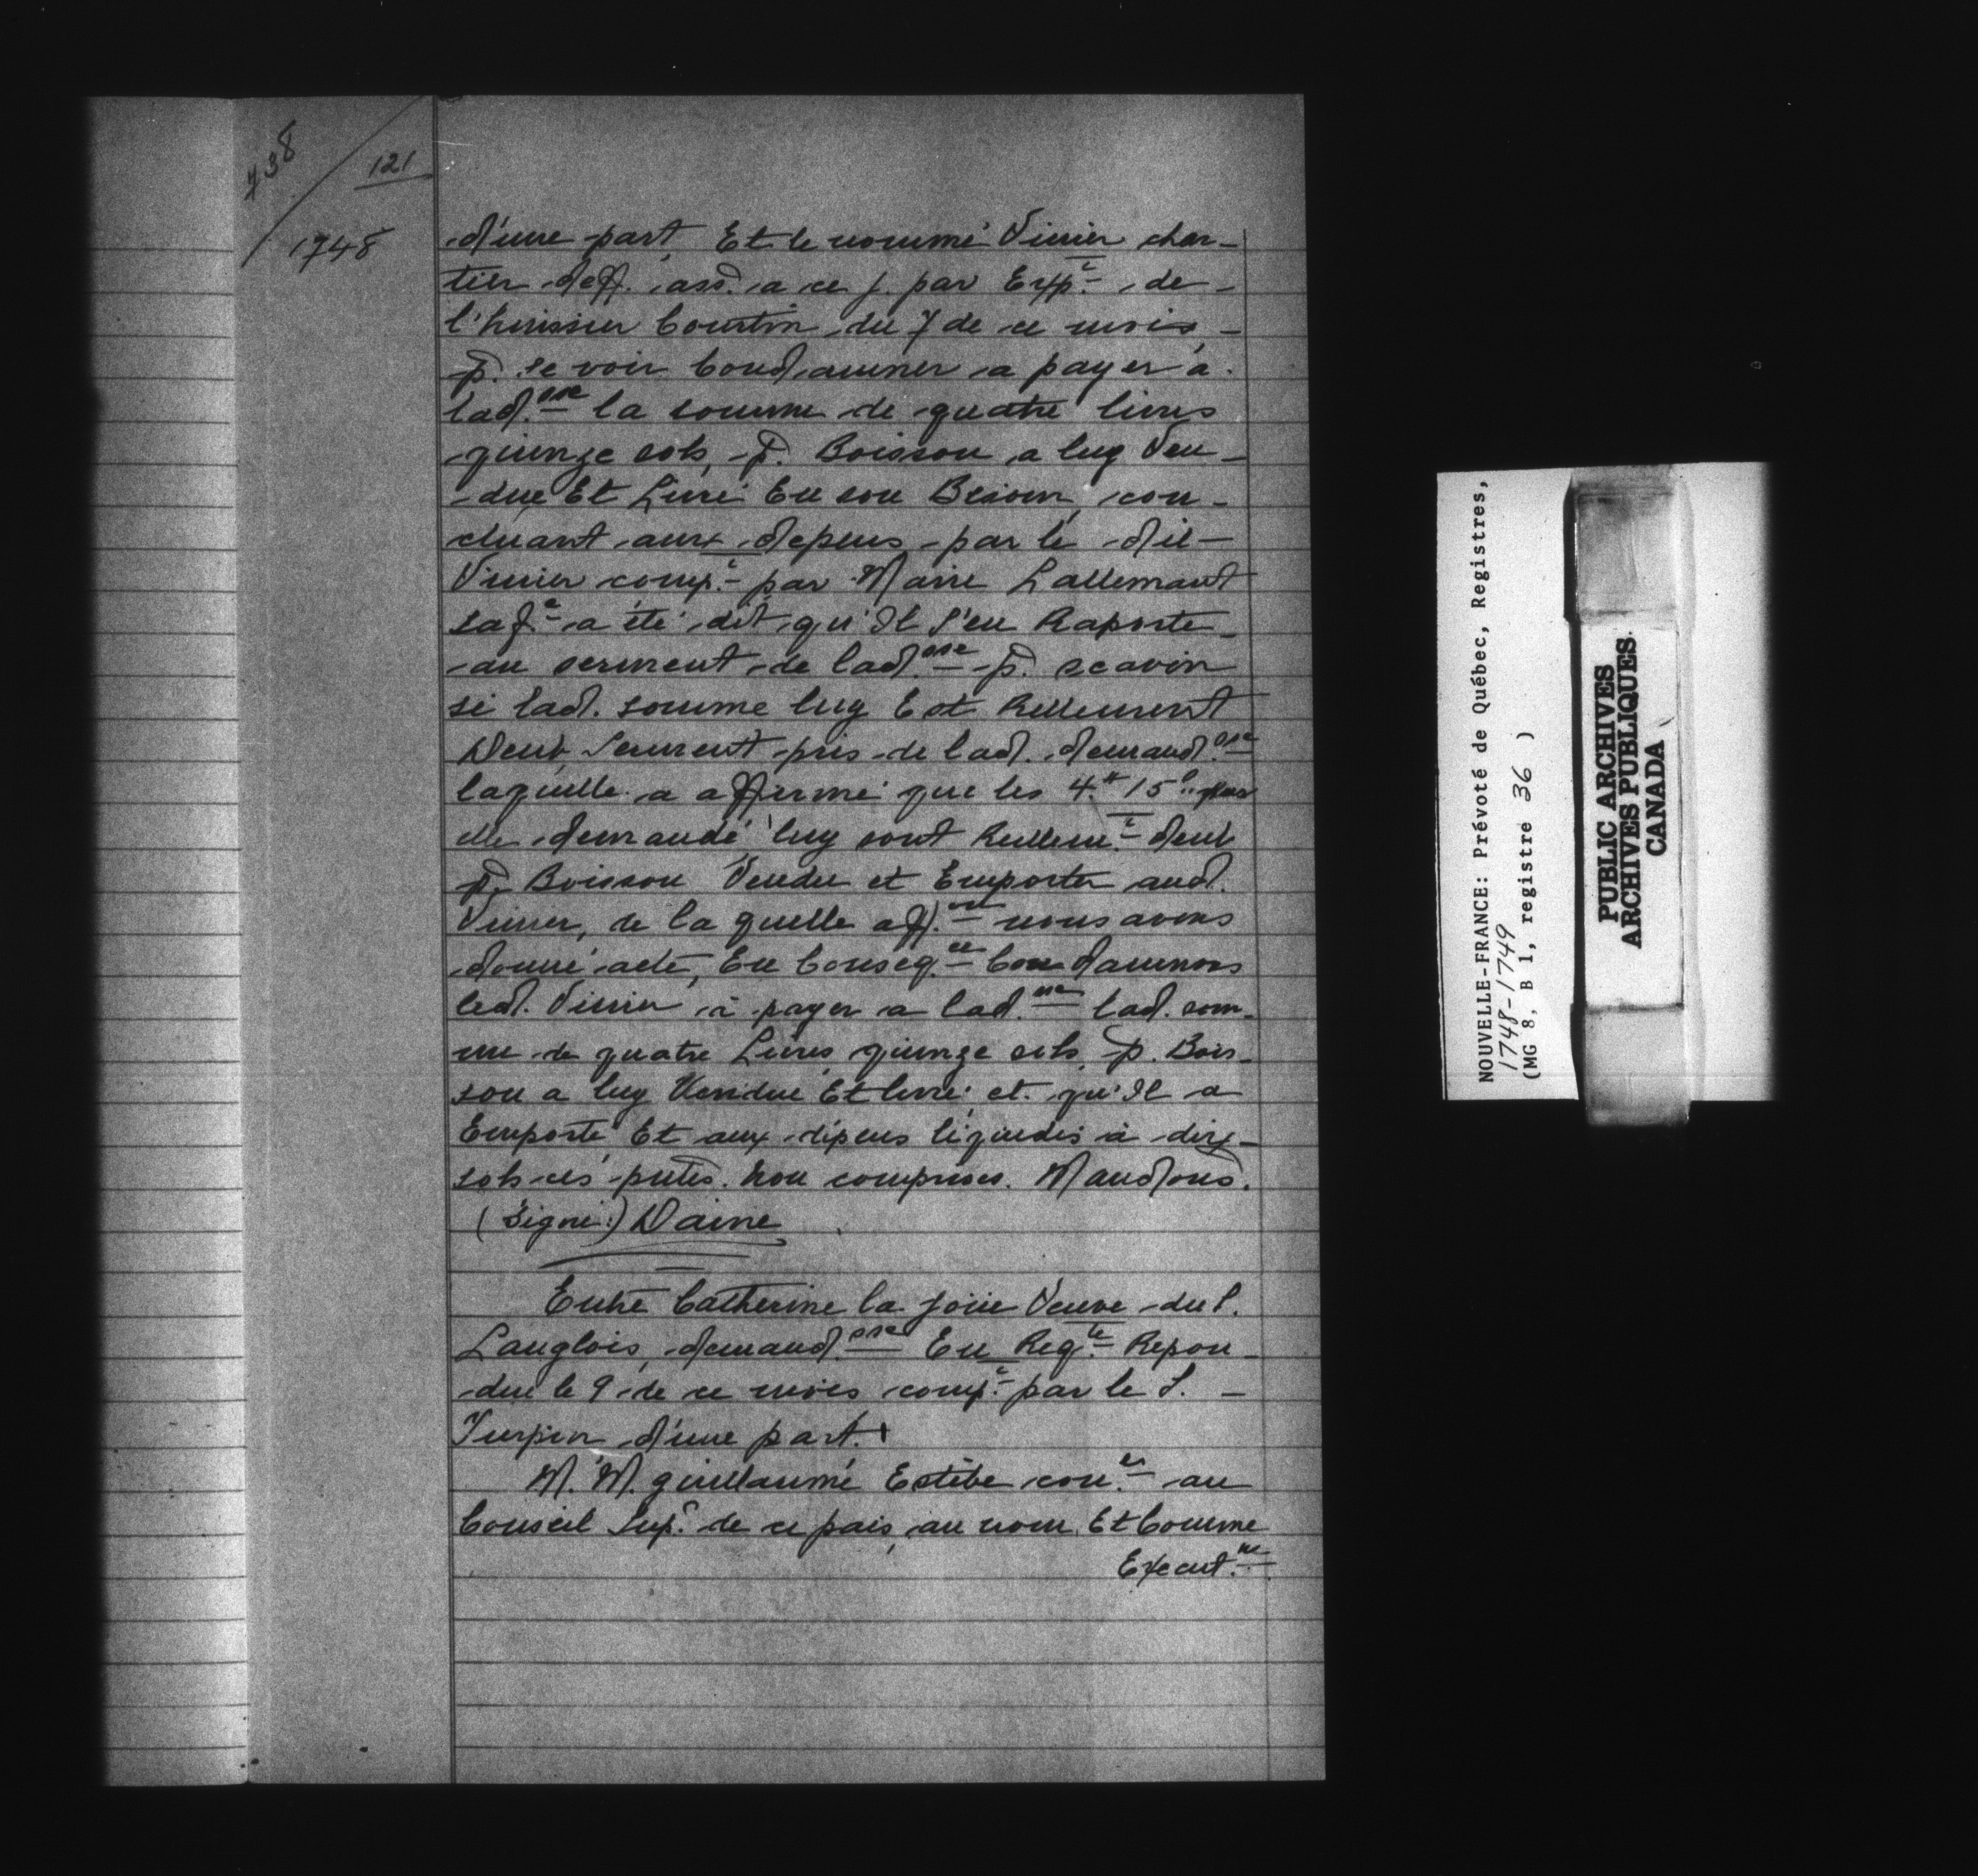 738
121
1748
d'une part, Et le nommé Vivier char-
tier deff. ass. a ce j. par Exp.t de
l'huissier Courtin du 7 de ce mois
p. se voir Condamner a payer a
lad.sse la somme de quatre livres
quinze sols, p. Boisson a luy Ven-
due Et Livré En son Besoin, con-
cluant aux depens par le dit
Vivier comp.t par Marie Lallemant
sa f.e a été dit qu'Il s'en Raporte
au serment de lad.sse p. scavoir
si lad. somme luy Est Rellement
Deub, Serment pris de lad. demand.sse
laquelle a affirmé que les 4.# 15.s
elle demandé luy sont Rellem.t deub
p. Boisson Vendu et Emporter aud.
Vivier, de la quelle aff.on nous avons
donné acte, En Conseq.ce Condamnons
led. Vivier à payer a lad.sse lad. som-
me de quatre Livres quinze sols p. Bois-
son a luy Vendue Et livré et qu'Il a
Emporté Et aux dépens liquidés à dix
sols ces pntes. non comprises. Mandons.
(Signé:) Daine
Entre Catherine la joiie Veuve du S.
Langlois, demand.sse En Req.te Repon-
due le 9 de ce mois comp.t par le S.
Turpin d'une part.
M. M. guillaume Estèbe con.er au
Conseil Sup.r de ce païs, au nom Et Comme
Execut.
NOUVELLE-FRANCE: Prévoté de Québec, Registres,
1748-1749
(MG 8, B 1, registre 36 )
PUBLIC ARCHIVES
ARCHIVES PUBLIQUES
CANADA